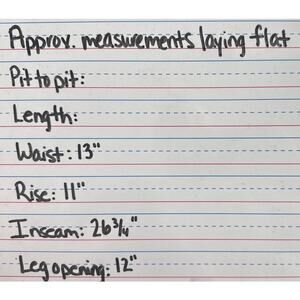 Approx. measurements laying flat
Pit to pit:
Length:
Waist: 13"
Rise: 11"
Inseam: 26 3/4"
Leg opening: 12"